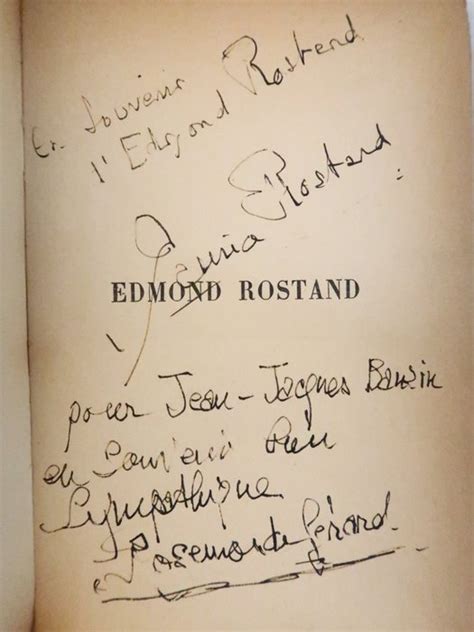 En souvenir
d'Edmond Rostand
Rostand
EDMOND ROSTAND
pour Jean-Jacques
en souvenir bien
sympathique
Rosemonde Gérard